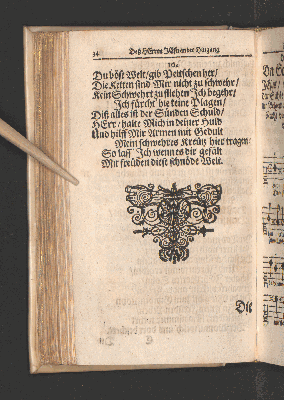 34 Deß HErrn JEsu
10.
Du böse Welt / gib Peitschen her /
Die Ketten sind Mir nicht zu schwehr /
Kein Schwehrt zu fliehen Ich begehr /
Ich fürcht hie keine Plagen /
Diß alles ist der Sünden Schuld /
HErr / halte Mich in deiner Huld
Und hilff Mir Armen mit Gedult
Mein schwehres Kreutz hier tragen
So laß Ich wenn es dir gefält
Mit freuden diese schnöde Welt.
Die